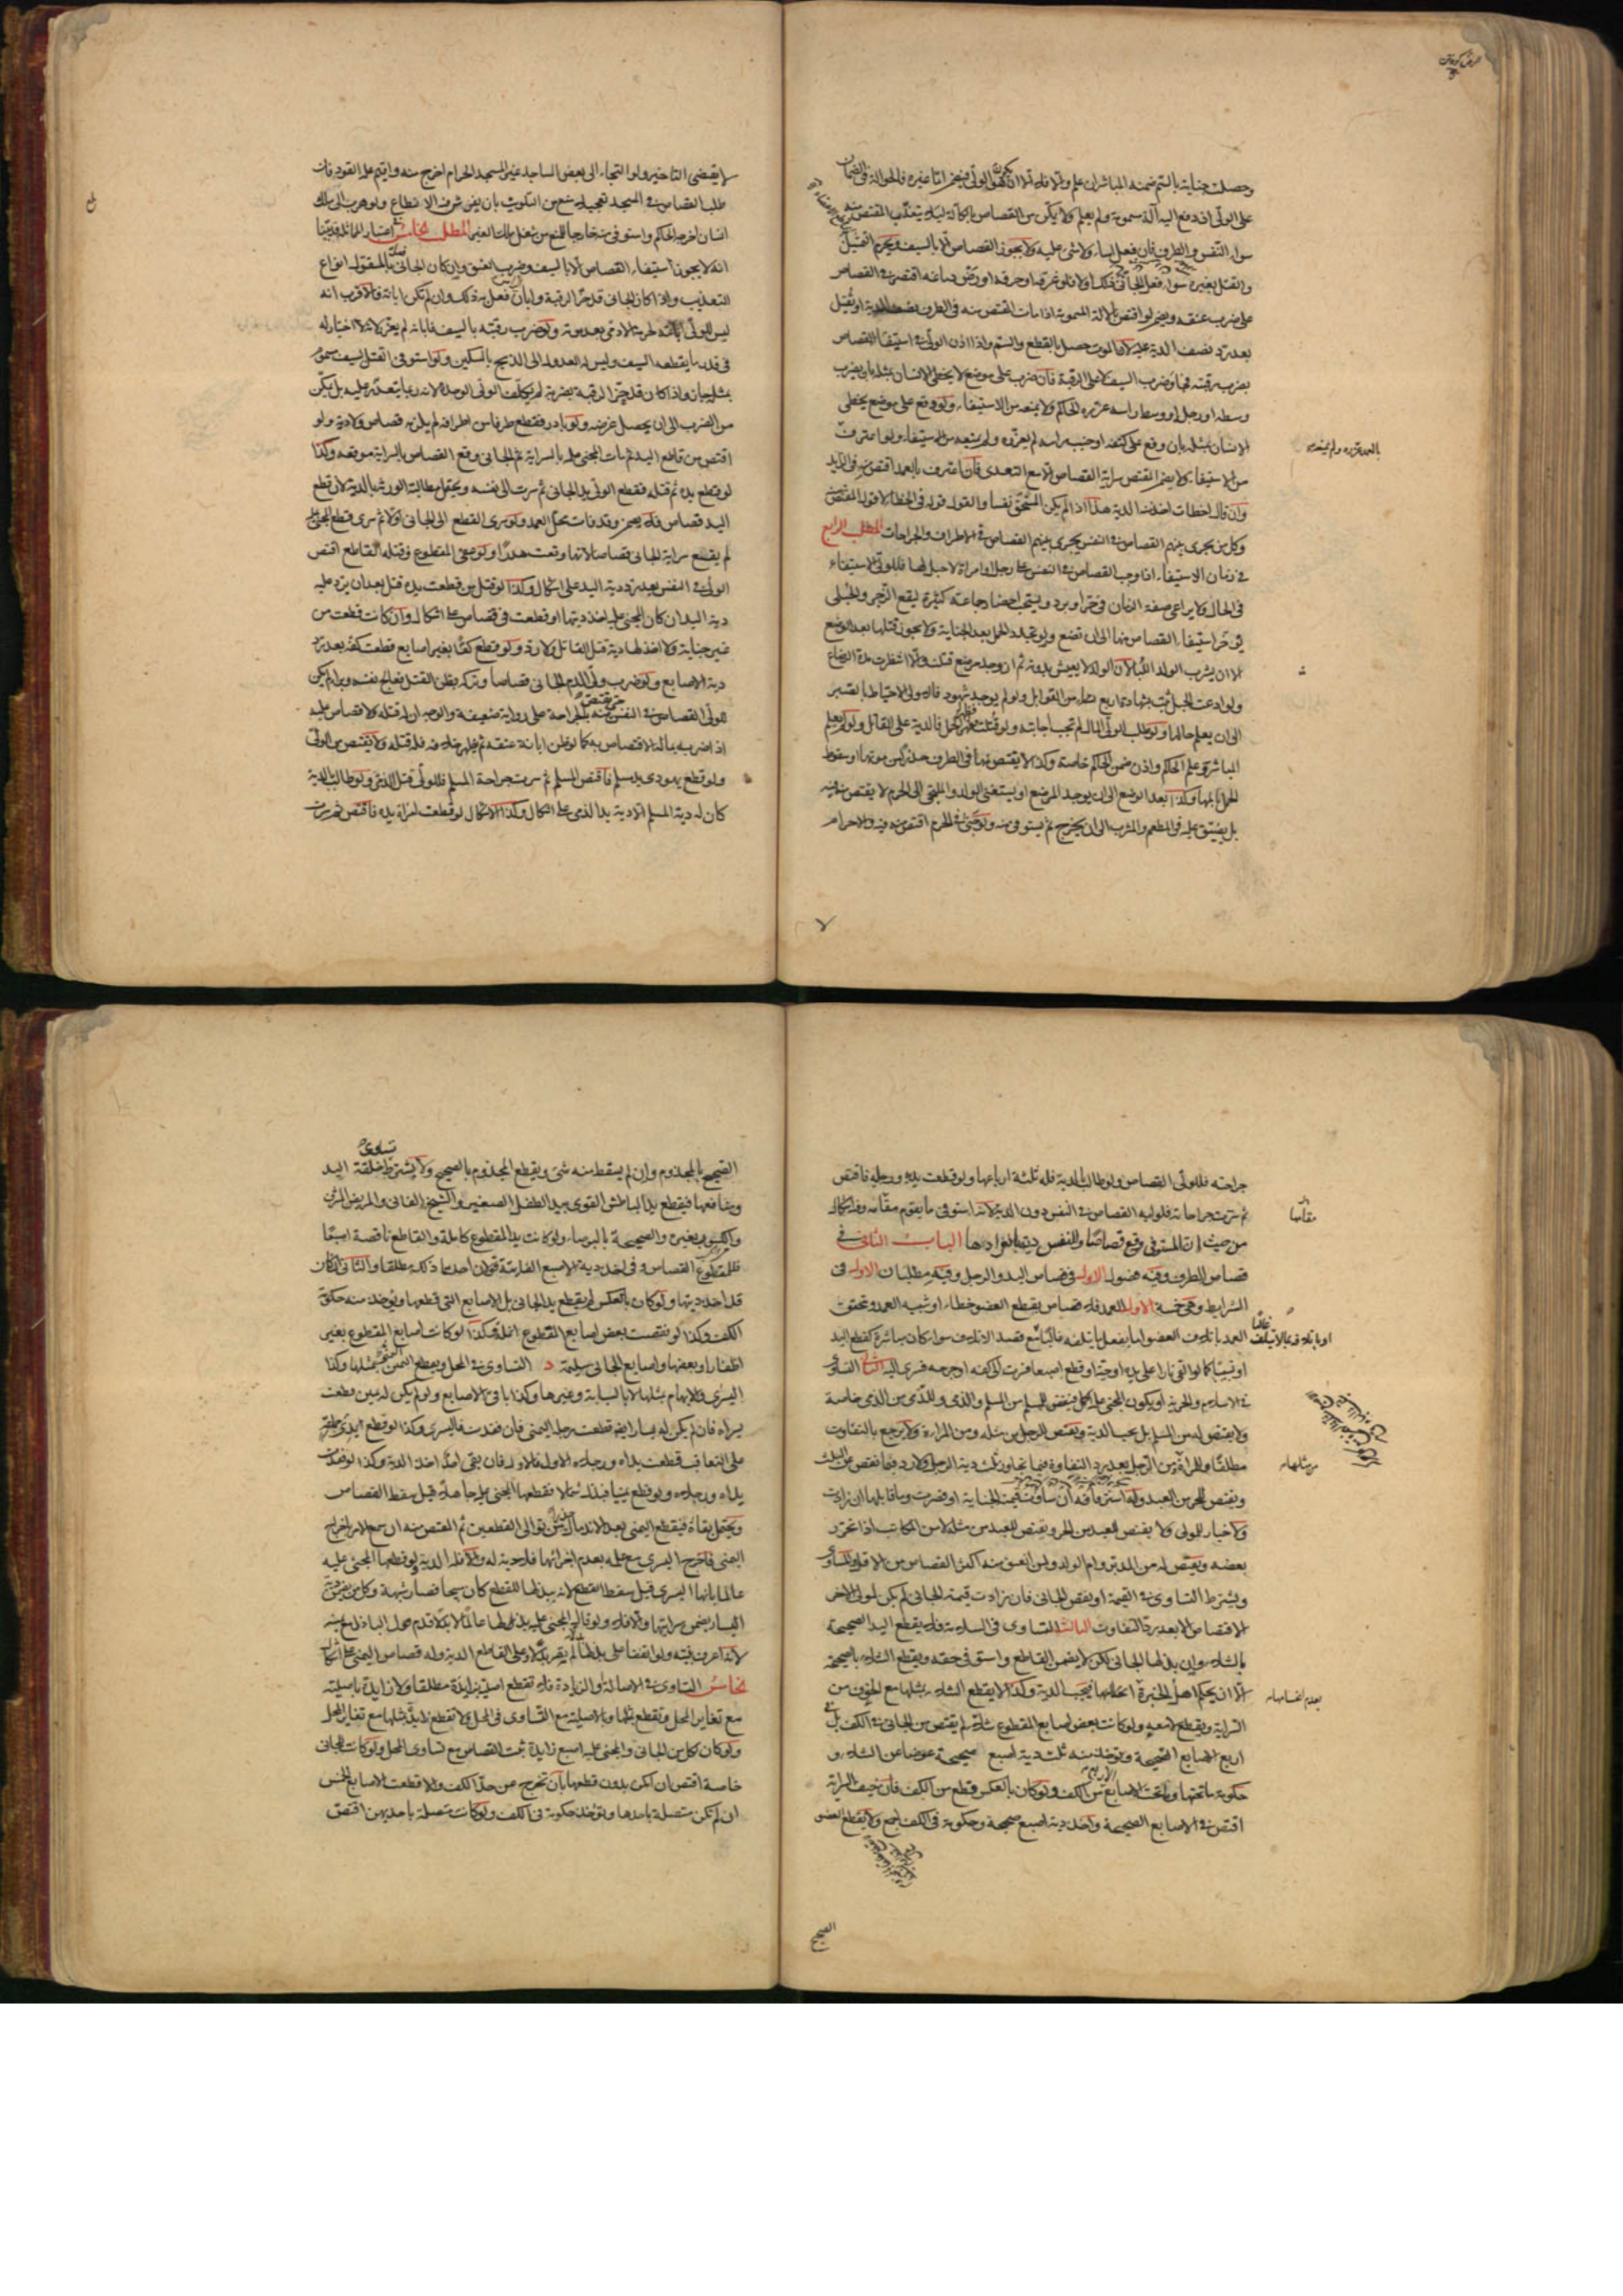 وحصلت جناية بالسم ضمنه المباشر ان علم والا فلا الا ان يكون هو الولي فيضمن اما غيره فالحوالة في الضمان
على الولي ان دفع اليه آلة مسمومة ولم يعلم ولا يمكن من القصاص بآلة كالة لئلا يتعذب المقتص منه
سواء النفس والطرف فان فعل اساء ولا شيء عليه ولا يجوز القصاص الا بالسيف ويحرم التمثيل
والقتل بغيره سواء فعل الجاني ذلك اولا فلو غرقه او حرقه او رض دماغه اقتصر في القصاص
على ضرب عنقه ويضمن لو اقتص بالآلة المسمومة اذا مات المقتص منه في الطرف نصف الدية او يقتل
بعد رد نصف الدية عليه لان الموت حصل بالقطع والسم واذا اذن الولي في استيفاء القصاص
بضرب رقبته فجاء وضرب السيف لا على الرقبة فان ضرب على موضع لا يخطئ الانسان بمثله بان يضرب
وسطه او رجله او وسط راسه عزره الحاكم ولا يمنعه من الاستيفاء ولو وقع على موضع يخطئ
الانسان بمثله بان وقع على كتفه او جنب راسه لم يعزره ولم يمنعه من الاستيفاء ولو اعترف
بالعمد عزره ولم يمنعه
من الاستيفاء ولا يضمن المقتص سراية القصاص الا مع التعدي فان اعترف بالعمد اقتص منه في الزايد
وان قال اخطات اخذ منه الدية هذا اذا لم يكن المستحق نفسا والقول قوله في الخطاء لا قول المقتص
وكل من يجري بينهم القصاص في النفس يجري بينهم القصاص في الاطراف والجراحات المطلب الرابع
في زمان الاستيفاء اذا وجب القصاص في النفس على رجل او امراة لا حبل لها فللولي الاستيفاء
في الحال ولا يراعي صفة الزمان في حر او برد ويستحب احضار جماعة كثيرة ليقع الزجر والحبلى
يؤخر استيفاء القصاص منها الى ان تضع ولو تجدد الحمل بعد الجناية ولا يجوز قتلها بعد الوضع
الا ان يشرب الولد اللبا لان الولد لا يعيش بدونه ثم ان وجد مرضع قتلت والا انتظرت مدة الرضاع
ولو ادعت الحبل ثبت بشهادة اربع نساء من القوابل ولو لم يوجد شهود فالاولى الاحتياط بالصبر
الى ان يعلم حالها ولو طلب الولي المال لم تجب اجابته ولو قتلت فظهر الحمل فالدية على القاتل ولو لم يعلم
المباشر وعلم الحاكم واذن ضمن الحاكم خاصة وكذا لا يقتص منها في الطرف حذرا من موتها او سقوط
الحمل بالمها وكذا بعد الوضع الى ان يوجد المرضع او يستغني الولد والملتجي الى الحرم لا يقتص منه فيه
بل يضيق عليه في المطعم والمشرب الى ان يخرج ثم يستوفى منه ولو جنى في الحرم اقتص منه فيه والاحرام
لا يقتضي التاخير ولو التجا الى بعض المساجد غير المسجد الحرام اخرج منه واقيم عليه القود فان
طلب القصاص في المسجد تعجيلا منع من التلويث بان يفرش فيه الانطاع ولو هرب الى ملك
انسان اخرجه الحاكم واستوفى منه خارجا للمنع من شغل ملك الغير المطلب الخامس في اعتبار المماثلة قد بينا
انه لا يجوز استيفاء القصاص الا بالسيف وضرب العنق وان كان الجاني فعل بالمقتول انواع
التعذيب واذا كان الجاني قد حز الرقبة وابان الراس فعل به ذلك وان لم تكن ابانة فالاقرب انه
ليس للولي ابانته لحرمة الادمي بعد موته ولو ضرب رقبته بالسيف فابانه لم يعزر لانه لا اختيار له
في قدر ما يقطعه السيف وليس له العدول الى الذبح بالسكين ولو استوفى القتل بسيف مسموم
بمثله جاز واذا كان قد حز الرقبة بضربة لم يكلف الولي الوحدة لانه ربما يتعذر عليه بل يمكن
من الضرب الى ان يحصل غرضه ولو بادر فقطع طرفا من اطرافه لم يلزمه قصاص ولا دية ولو
اقتص من قاطع اليد ثم مات المجني عليه بالسراية ثم الجاني وقع القصاص بالسراية موقعه وكذا
لو قطع يده ثم قتله فقطع الولي يد الجاني ثم سرت الى نفسه ويحتمل مطالبة الورثة بالدية لان قطع
اليد قصاص فلا يضمن وقد فات محل العمد ولو سرى القطع الى الجاني اولا ثم سرى قطع المجني عليه
لم يقع سراية الجاني قصاصا لانها وقعت هدرا ولو عفى المقطوع وقتله القاطع اقتص
الولي في النفس بعد رد دية اليد على اشكال وكذا لو قتل من قطعت يده قتل بعد ان يرد عليه
دية اليد ان كان المجني عليه اخذ ديتها او قطعت في قصاص على اشكال وان كانت قطعت من
غير جناية ولا اخذ لها دية قتل القاتل ولا رد ولو قطع كفا بغير اصابع قطعت كفه بعد رد
دية الاصابع ولو ضرب ولي الدم الجاني قصاصا وتركه بظن القتل فعالج نفسه وبرا لم يكن
للولي القصاص في النفس حتى يقتص منه بالجراحة على رواية ضعيفة والوجه ان له قتله ولا قصاص عليه
اذا ضربه بما له الاقتصاص به كما لو ظن ابانة عنقه ثم ظهر خلافه فله قتله ولا يقتص من الولي
ولو قطع يهودي يد مسلم فاقتص المسلم ثم سرت جراحة المسلم فللولي قتل الذمي ولو طالب الدية
كان له دية المسلم الا دية يد الذمي على اشكال وكذا الاشكال لو قطعت امراة يده فاقتص ثم سرت
جراحته فللولي القصاص ولو طالب الدية فله ثلثة ارباعها ولو قطعت يديه ورجليه فاقتص
ثم سرت جراحاته فلوليه القصاص في النفس دون الدية لانه استوفى ما يقوم مقامه وفيه اشكال
من حيث ان المستوفى وقع قصاصا وللنفس دية بانفرادها الباب الثاني في
قصاص الطرف وفيه فصول الاول في قصاص اليد والرجل وفيه مطلبان الاول في
الشرايط وهي خمسة الاول العمد فلا قصاص بقطع العضو خطاء او شبيه العمد وتحقق
العمد باتلاف العضو اما بفعل ما يتلفه غالبا مع قصد الاتلاف سواء كان مباشرة كقطع اليد
او بالاتلاف بما لا يتلف غالبا
او تسبيبا كما لو القى نارا على يده او حية او قطع اصبعا فسرت الى كفه او جرحه فسرى اليه الثاني التساوي
في الاسلام والحرية او يكون المجني عليه اكمل فيقتص للمسلم من المسلم والذمي وللذمي من الذمي خاصة
ولا يقتص له من المسلم بل يجب الدية ويقتص للرجل من مثله ومن المراة ولا يرجع بالتفاوت
مطلقا وللمراة من الرجل بعد رد التفاوت فيما تجاوز ثلث دية الرجل ولا رد فيما نقص عن الثلث
من مثلها
ويقتص للحر من العبد وله استرقاقه ان ساوت قيمته الجناية او قصرت وما قابلها ان زادت
ولا خيار للمولى ولا يقتص للعبد من الحر ويقتص للعبد من مثله لا من المكاتب اذا تحرر
بعضه ويقتص له من المدبر وام الولد ولمن انعتق منه اكثر القصاص من الاقل والمساوي
ويشترط التساوي في القيمة او نقص الجاني فان زادت قيمة الجاني لم يكن لمولى الاخر
الاقتصاص الا بعد رد التفاوت الثالث التساوي في السلامة فلا يقطع اليد الصحيحة
بالشلاء وان بذلها الجاني لكن لا يضمن القاطع واستوفى حقه ويقطع الشلاء بالصحيحة
الا ان يحكم اهل الخبرة بعدم انحسامها فيجب الدية وكذا لا يقطع الشلاء بمثلها مع الخوف من
السراية ويقطع لا معه ولو كانت بعض اصابع المقطوع شلاء لم يقتص من الجاني في الكف بل في
اربع الاصابع الصحيحة ويؤخذ منه ثلث دية اصبع صحيحة عوضا عن الشلاء و
حكومة ما تحتها وما تحت الاصابع الاربع من الكف ولو كان بالعكس قطع من الكف فان خيف السراية
اقتص في الاصابع الصحيحة واخذ دية اصبع صحيحة وحكومة في الكف اجمع ولا يقطع العضو
الصحيح
الصحيح بالمجذوم وان لم يسقط منه شيء ويقطع المجذوم بالصحيح ولا يشترط تساوي خلقة اليد
ومنافعها فيقطع يد الباطش القوي بيد الطفل الصغير والشيخ الفاني والمريض المزمن
والكسوب بغيره والصحيحة بالبرصاء ولو كانت يد المقطوع كاملة والقاطع ناقصة اصبعا
فللمقطوع القصاص وفي اخذ دية الاصبع الفايتة قولان احدهما ذلك مطلقا والثاني ان كان
قد اخذ ديتها ولو كان بالعكس لم يقطع يد الجاني بل الاصابع التي قطعها ويؤخذ منه حكومة
الكف وكذا لو نقصت بعض اصابع المقطوع انملة وكذا لو كانت اصابع المقطوع بغير
اظفار او بعضها واصابع الجاني سليمة د التساوي في المحل ويقطع اليمنى بمثلها وكذا
اليسرى والابهام بمثلها لا بالسبابة وغيرها وكذا باقي الاصابع ولو لم يكن له يمين قطعت
يسراه فان لم يكن له يسار ايضا قطعت رجله اليمنى فان فقدت فاليسرى وكذا لو قطع ايدي جماعة
على التعاقب قطعت يداه ورجلاه الاول فالاول فان بقي احد اخذ الدية وكذا لو فقدت
يداه ورجلاه ولو قطع يمينا فبذل شمالا فقطعها المجني عليه جاهلا قيل سقط القصاص
ويحتمل بقاؤه فيقطع اليمنى بعد الاندمال حذرا من توالى القطعين ثم المقتص منه ان سمع الامر باخراج
اليمنى فاخرج اليسرى مع علمه بعدم اجزائها فلا دية له والا فله الدية ولو قطعها المجني عليه
عالما بانها اليسرى قيل سقط القطع لانه ببذلها للقطع كان مبيحا فصار شبهة وكل من يضمن دية
اليسار يضمن سرايتها والا فلا ولو قال المجني عليه بذلها عالما لا بدلا قدم قول الباذل مع يمينه
لانه اعرف بنيته ولو اتفقا على بذلها بدلا لم يقع بدلا وعلى القاطع الدية وله قصاص اليمنى على اشكال
الخامس التساوي في الاصالة او الزيادة فلا تقطع اصلية بزايدة مطلقا ولا زايدة باصلية
مع تغاير المحل وتقطع بمثلها وبالاصلية مع التساوي في المحل ولا تقطع زايدة بمثلها مع تغاير المحل
ولو كان لكل من الجاني والمجني عليه اصبع زايدة ثبت القصاص مع تساوي المحل ولو كانت للجاني
خاصة اقتص ان امكن بدون قطعها بان تخرج عن حد الكف والا قطعت الاصابع الخمس
ان لم تكن متصلة باحدها ويؤخذ حكومة في الكف ولو كانت متصلة باحديهن اقتص